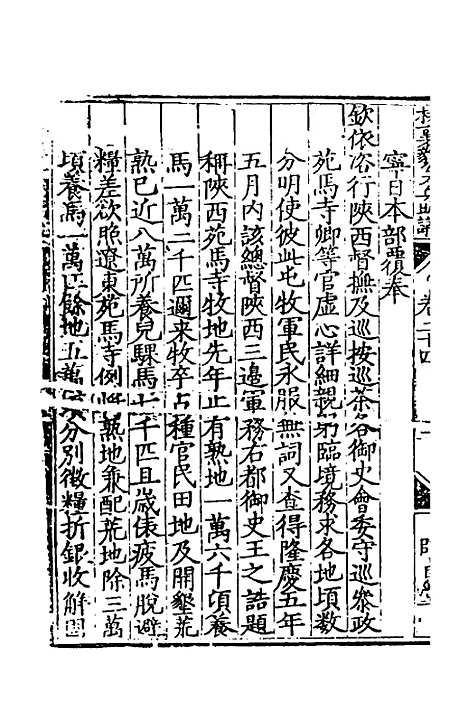 寧日本部覆奉
欽依咨行陝西督撫及巡按巡茶各御史會委守巡叅政
苑馬寺卿等官虛心詳細親詣臨境務求各地頃數
分明使彼此屯牧軍民永服無詞又查得隆慶五年
五月內該總督陝西三邊軍務右都御史王之誥題
稱陝西苑馬寺牧地先年止有熟地一萬六千頃養
馬一萬二千匹邇來牧卒占種官民田地及開墾荒
熟已近八萬所養兒騍馬七千匹且歲俵疲馬脫避
糧差欲照遼東苑馬寺例將熟地兼配荒地除三萬
頃養馬一萬匹餘地五萬頃分別徵糧折銀收解固
卷二十四